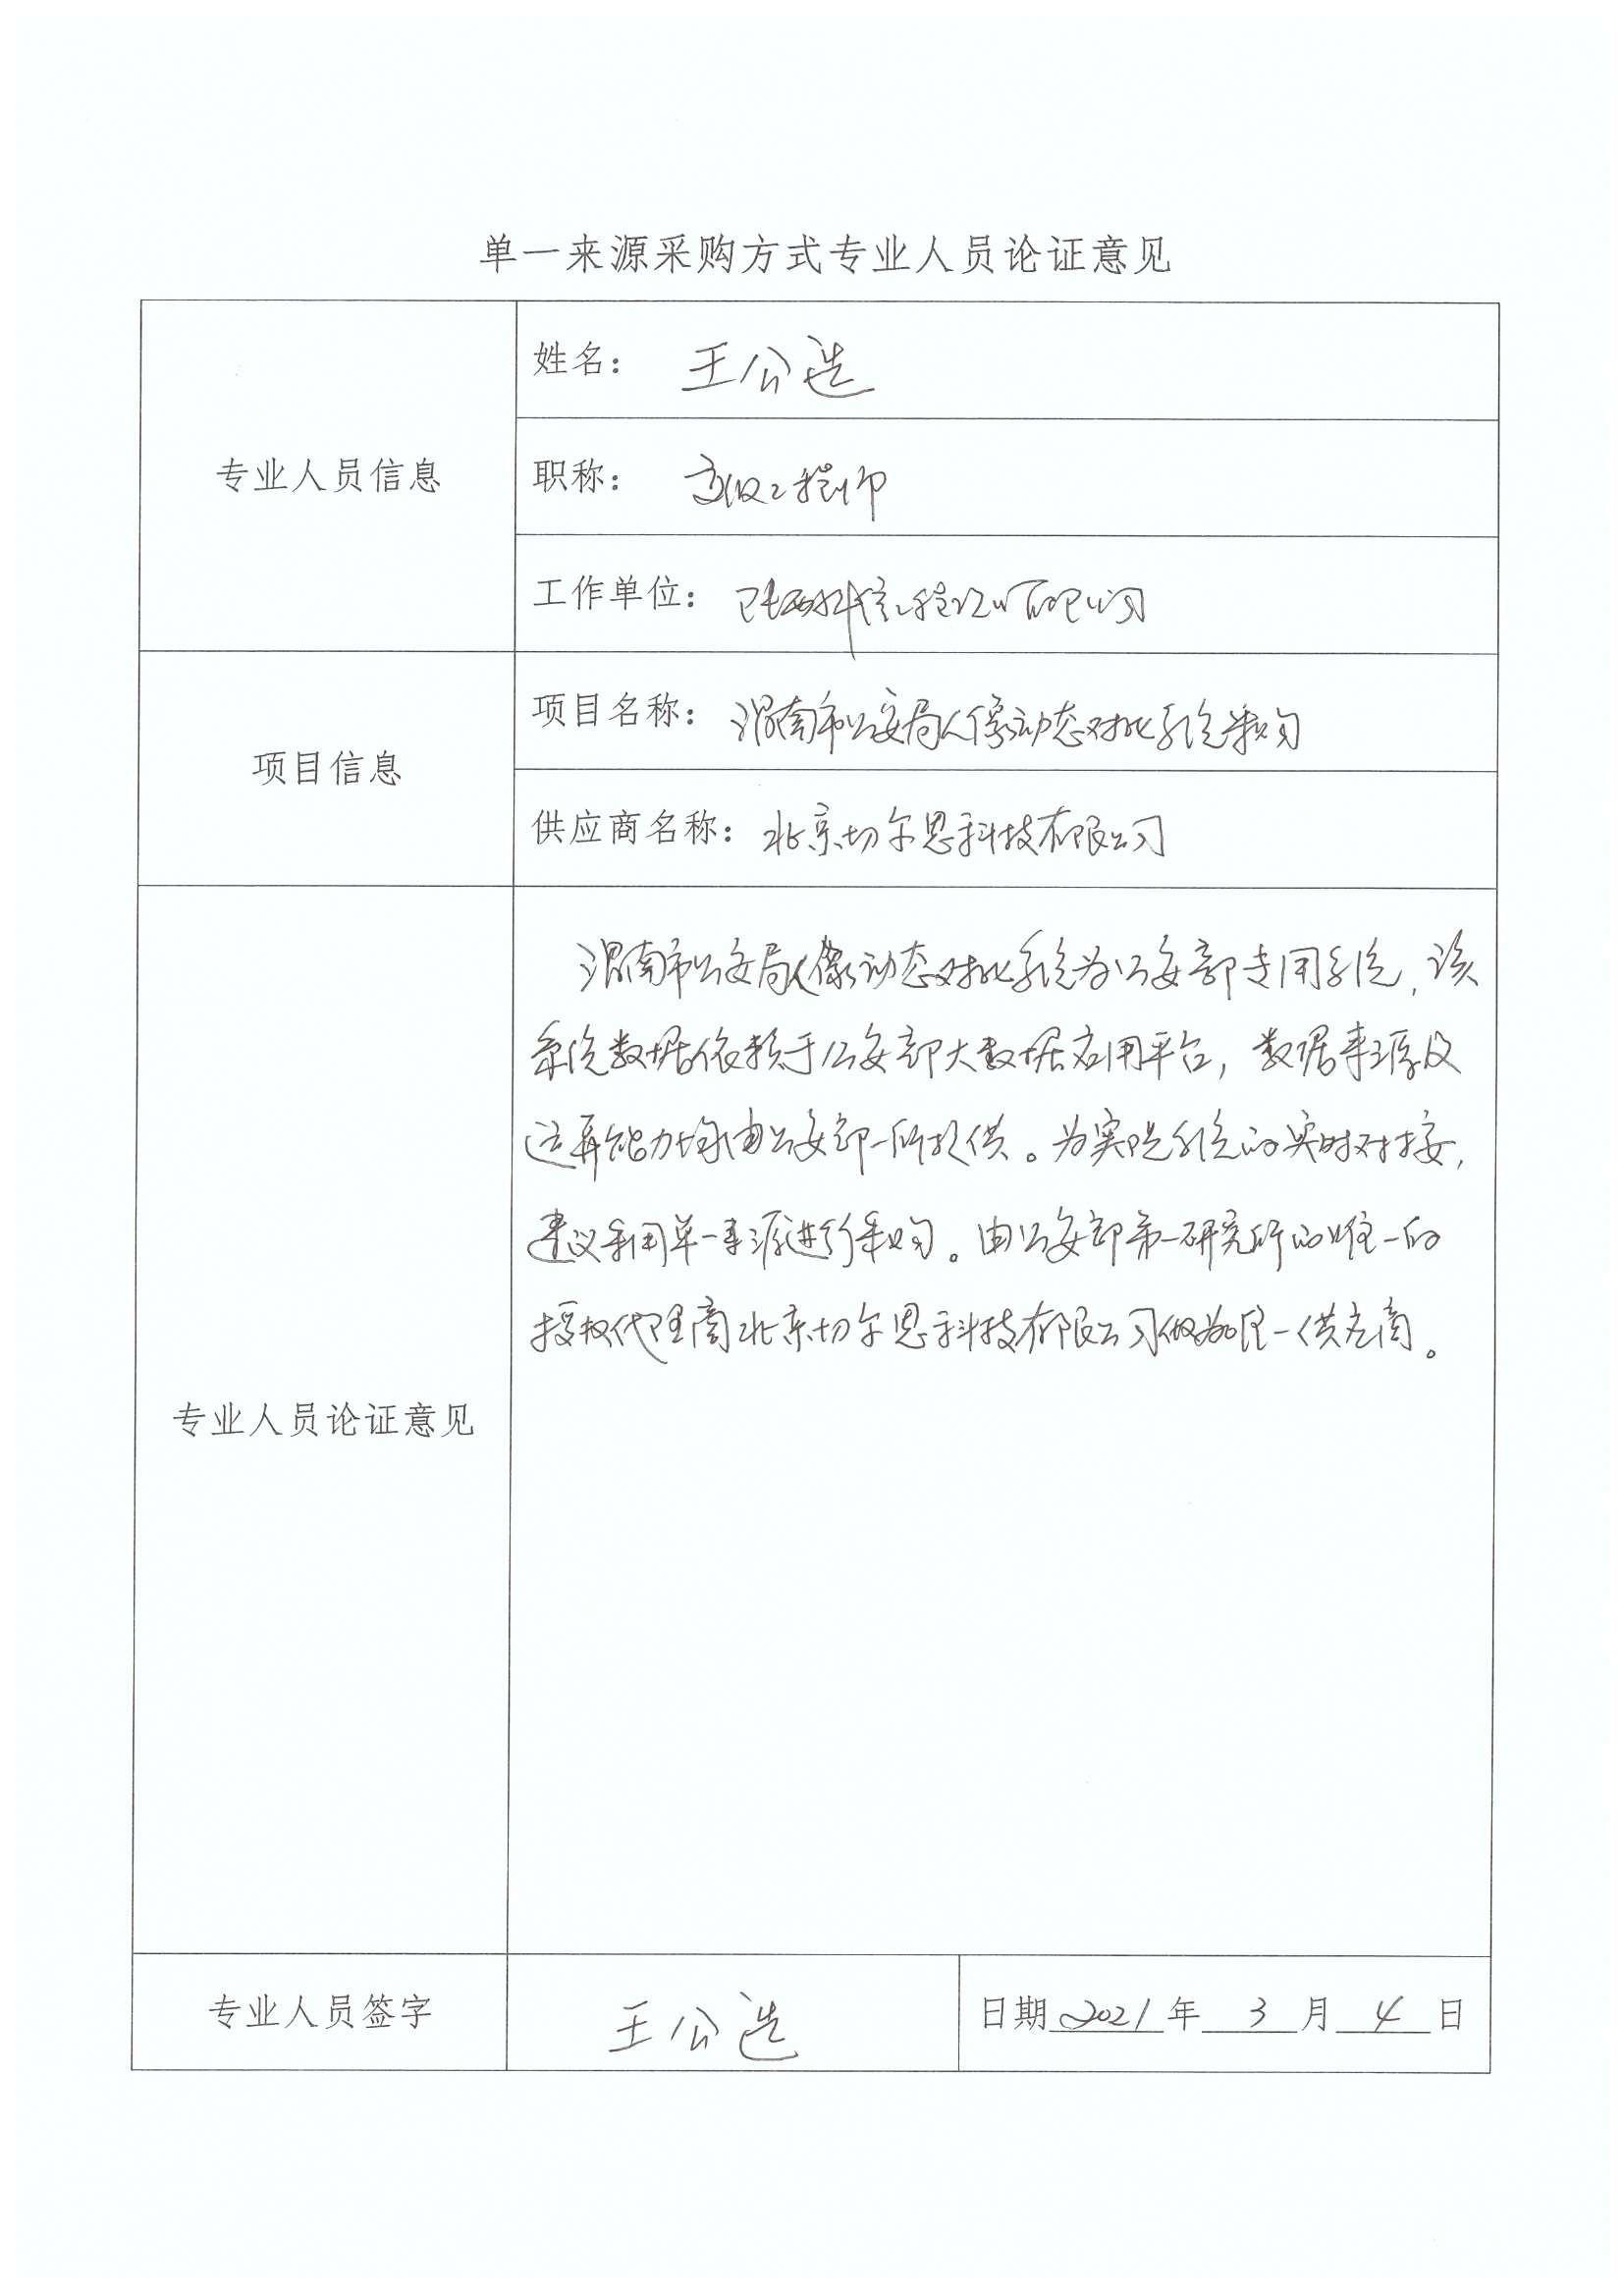 单一来源采购方式专业人员论证意见
专业人员信息
姓名： 王公选
职称： 高级工程师
工作单位： 陕西科信工程 有限公司
项目信息
项目名称： 渭南市公安局人像动态对比系统采购
供应商名称： 北京切尔思科技有限公司
专业人员论证意见
渭南市公安局人像动态对比系统为公安部专用系统，该
系统数据依赖于公安部大数据应用平台，数据来源及
运算能力均由公安部一所提供。为实现系统的实时对接，
建议采用单一来源进行采购。由公安部第一研究所的唯一的
授权代理商北京切尔思科技有限公司做为唯一供应商。
专业人员签字
王公选
日期2021年 3 月 4 日